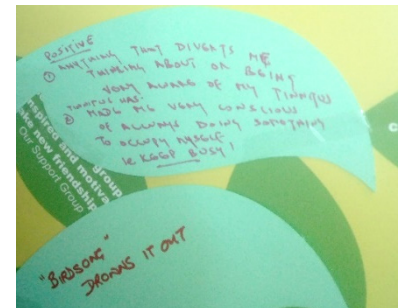 POSITIVE
① ANYTHING THAT DIVERTS ME
THINKING ABOUT OR BEING
VERY AWARE OF MY TINNITUS
TINNITUS HAS:
② MADE ME VERY CONSCIOUS
OF ALWAYS DOING SOMETHING
TO OCCUPY MYSELF
ie KEEP BUSY!
group
inspired and motiva
ake new friendship
Our Support Group
"BIRDSONG"
DROWNS IT OUT